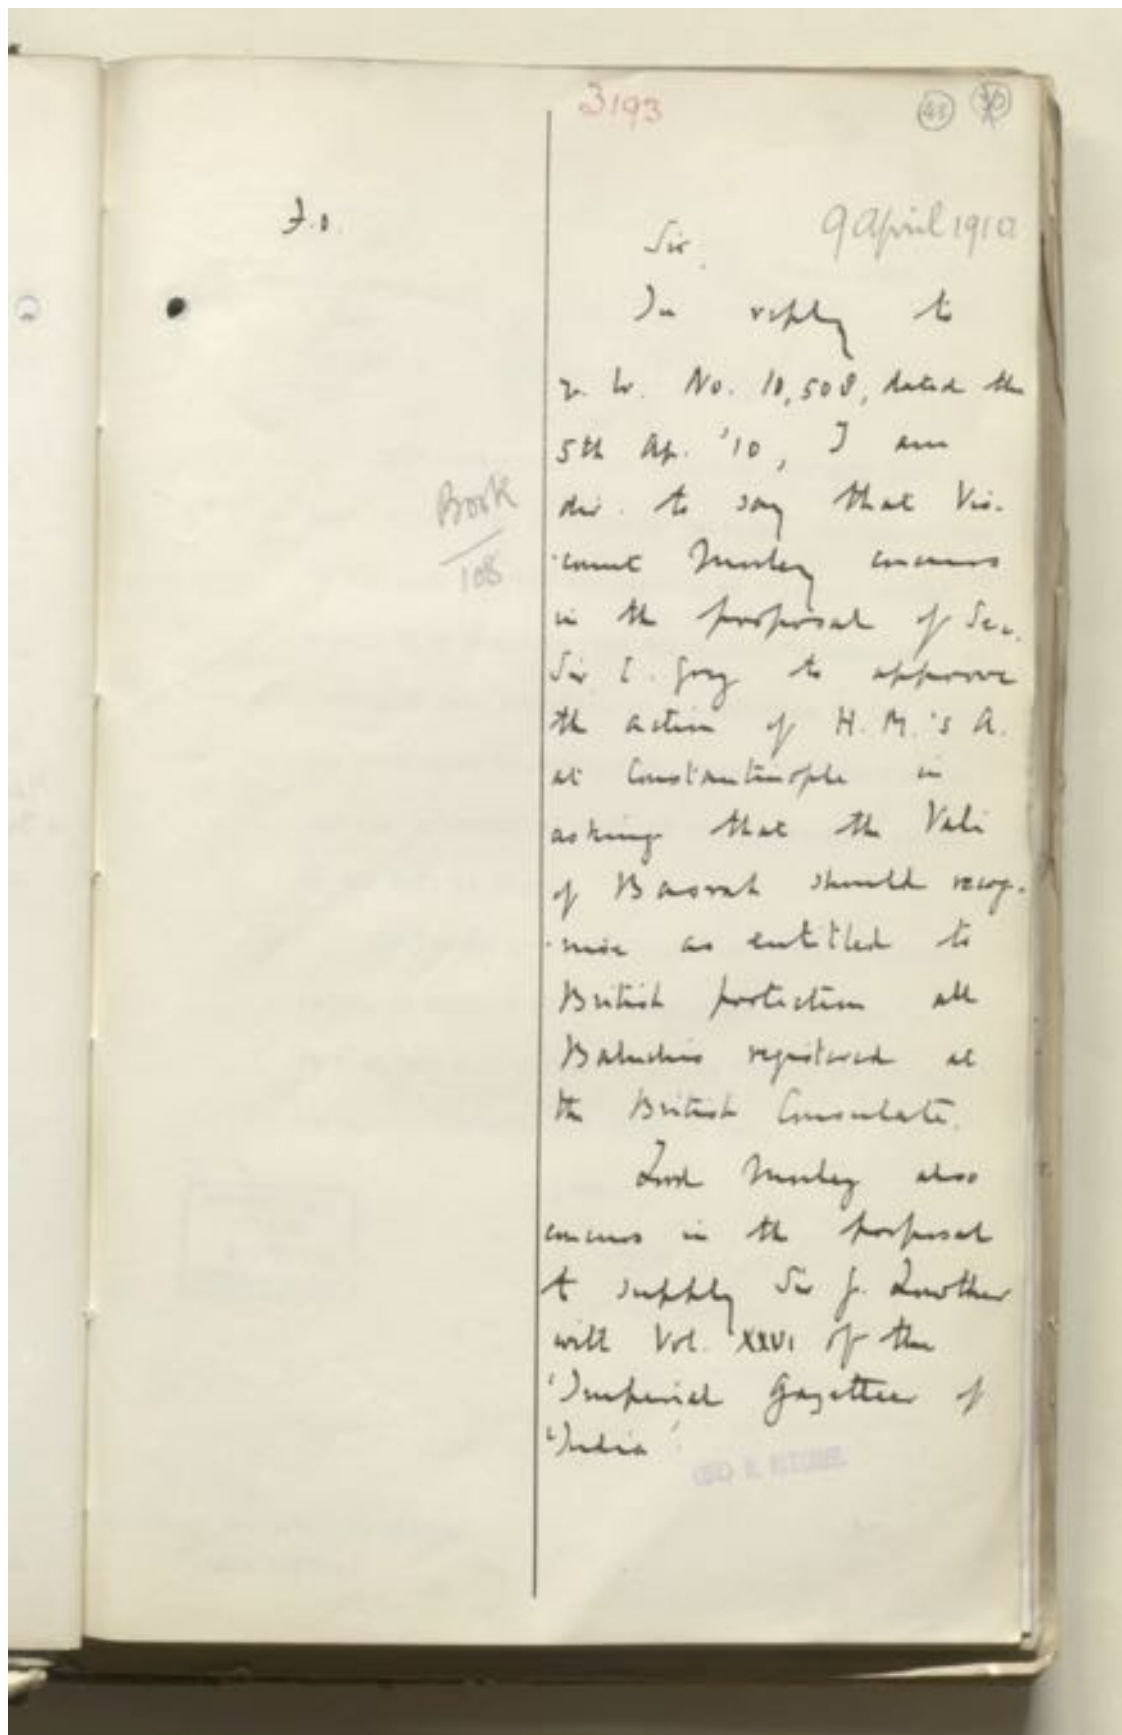 3193
43
F.O.
9 April 1910
Sir,
In reply to
y. lr. No. 10,508, dated the
5th Ap. '10, I am
dir. to say that Vis-
-count Morley concurs
in the proposal of Sec.
Sir E. Grey to approve
the action of H.M.'s A.
at Constantinople in
asking that the Vali
of Basrah should recog-
-nise as entitled to
British protection all
Baluchis registered at
the British Consulate.
Book
108
Lord Morley also
concurs in the proposal
to supply Sir G. Lowther
with Vol. XXVI of the
'Imperial Gazetteer of
'India'.